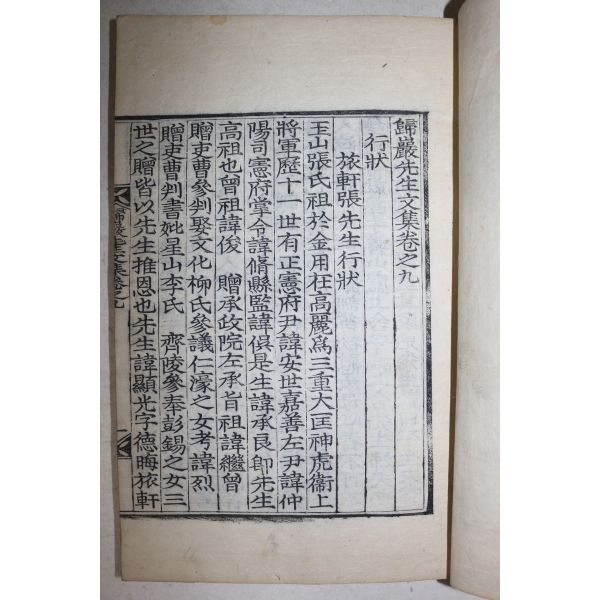 歸巖先生文集卷之九
行狀
旅軒張先生行狀
玉山張氏祖於金用在高麗爲三重大匡神虎衛上
將軍歷十一世有正憲府尹諱安世嘉善左尹諱仲
陽司憲府掌令諱脩縣監諱俣是生諱承良卽先生
高祖也曾祖諱俊 贈承政院左承旨祖諱繼曾
贈吏曹參判娶文化柳氏參議仁濠之女考諱烈
贈吏曹判書妣星山李氏 齊陵參奉彭錫之女三
世之贈皆以先生推恩也先生諱顯光字德晦旅軒
歸巖先生文集卷之九 一